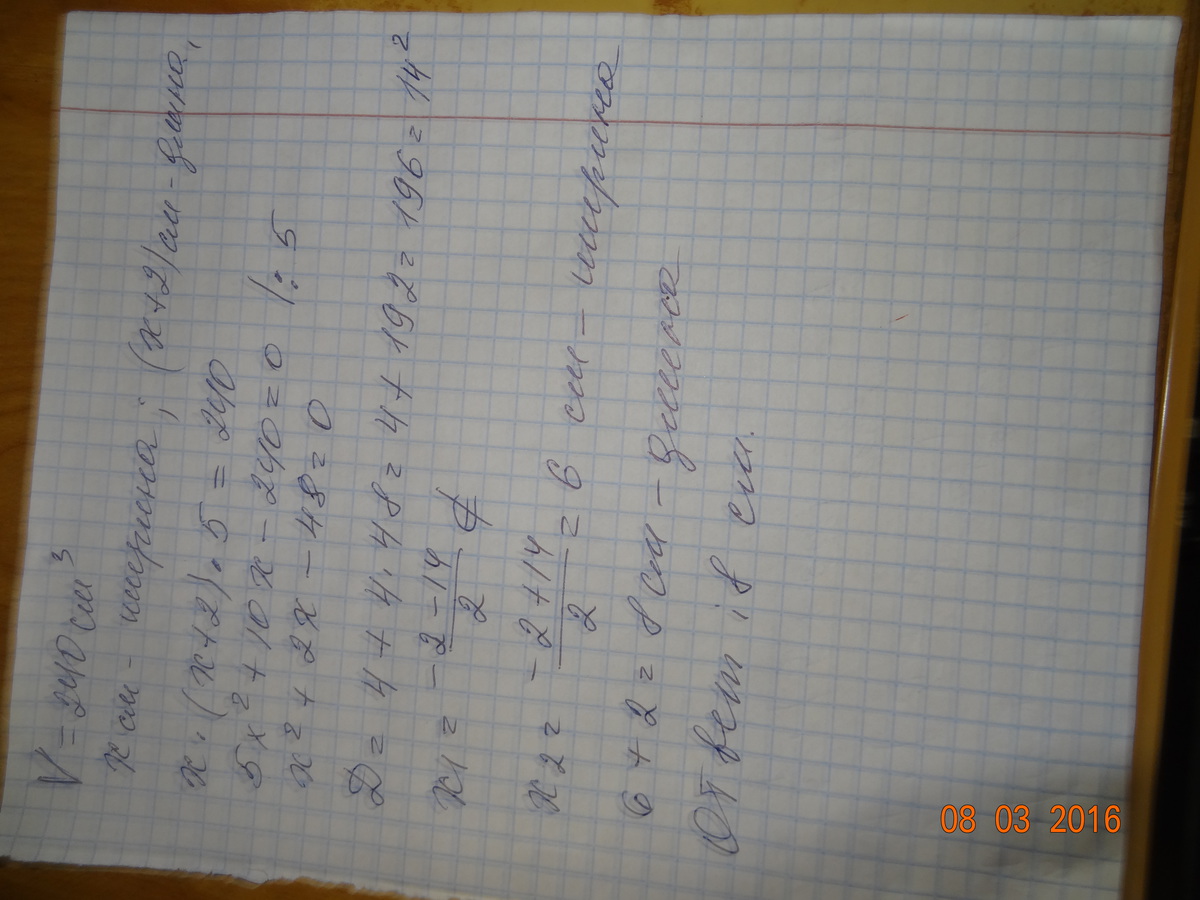 V = 240 см³
x см - ширина; (x+2) см - длина,
x · (x+2) · 5 = 240
5x² + 10x - 240 = 0 /: 5
x² + 2x - 48 = 0
D = 4 + 4 · 48 = 4 + 192 = 196 = 14²
x1 = -2-14/2 ∉
x2 = -2+14/2 = 6 см - ширина
6 + 2 = 8 см - длина
Ответ: 8 см.
08 03 2016